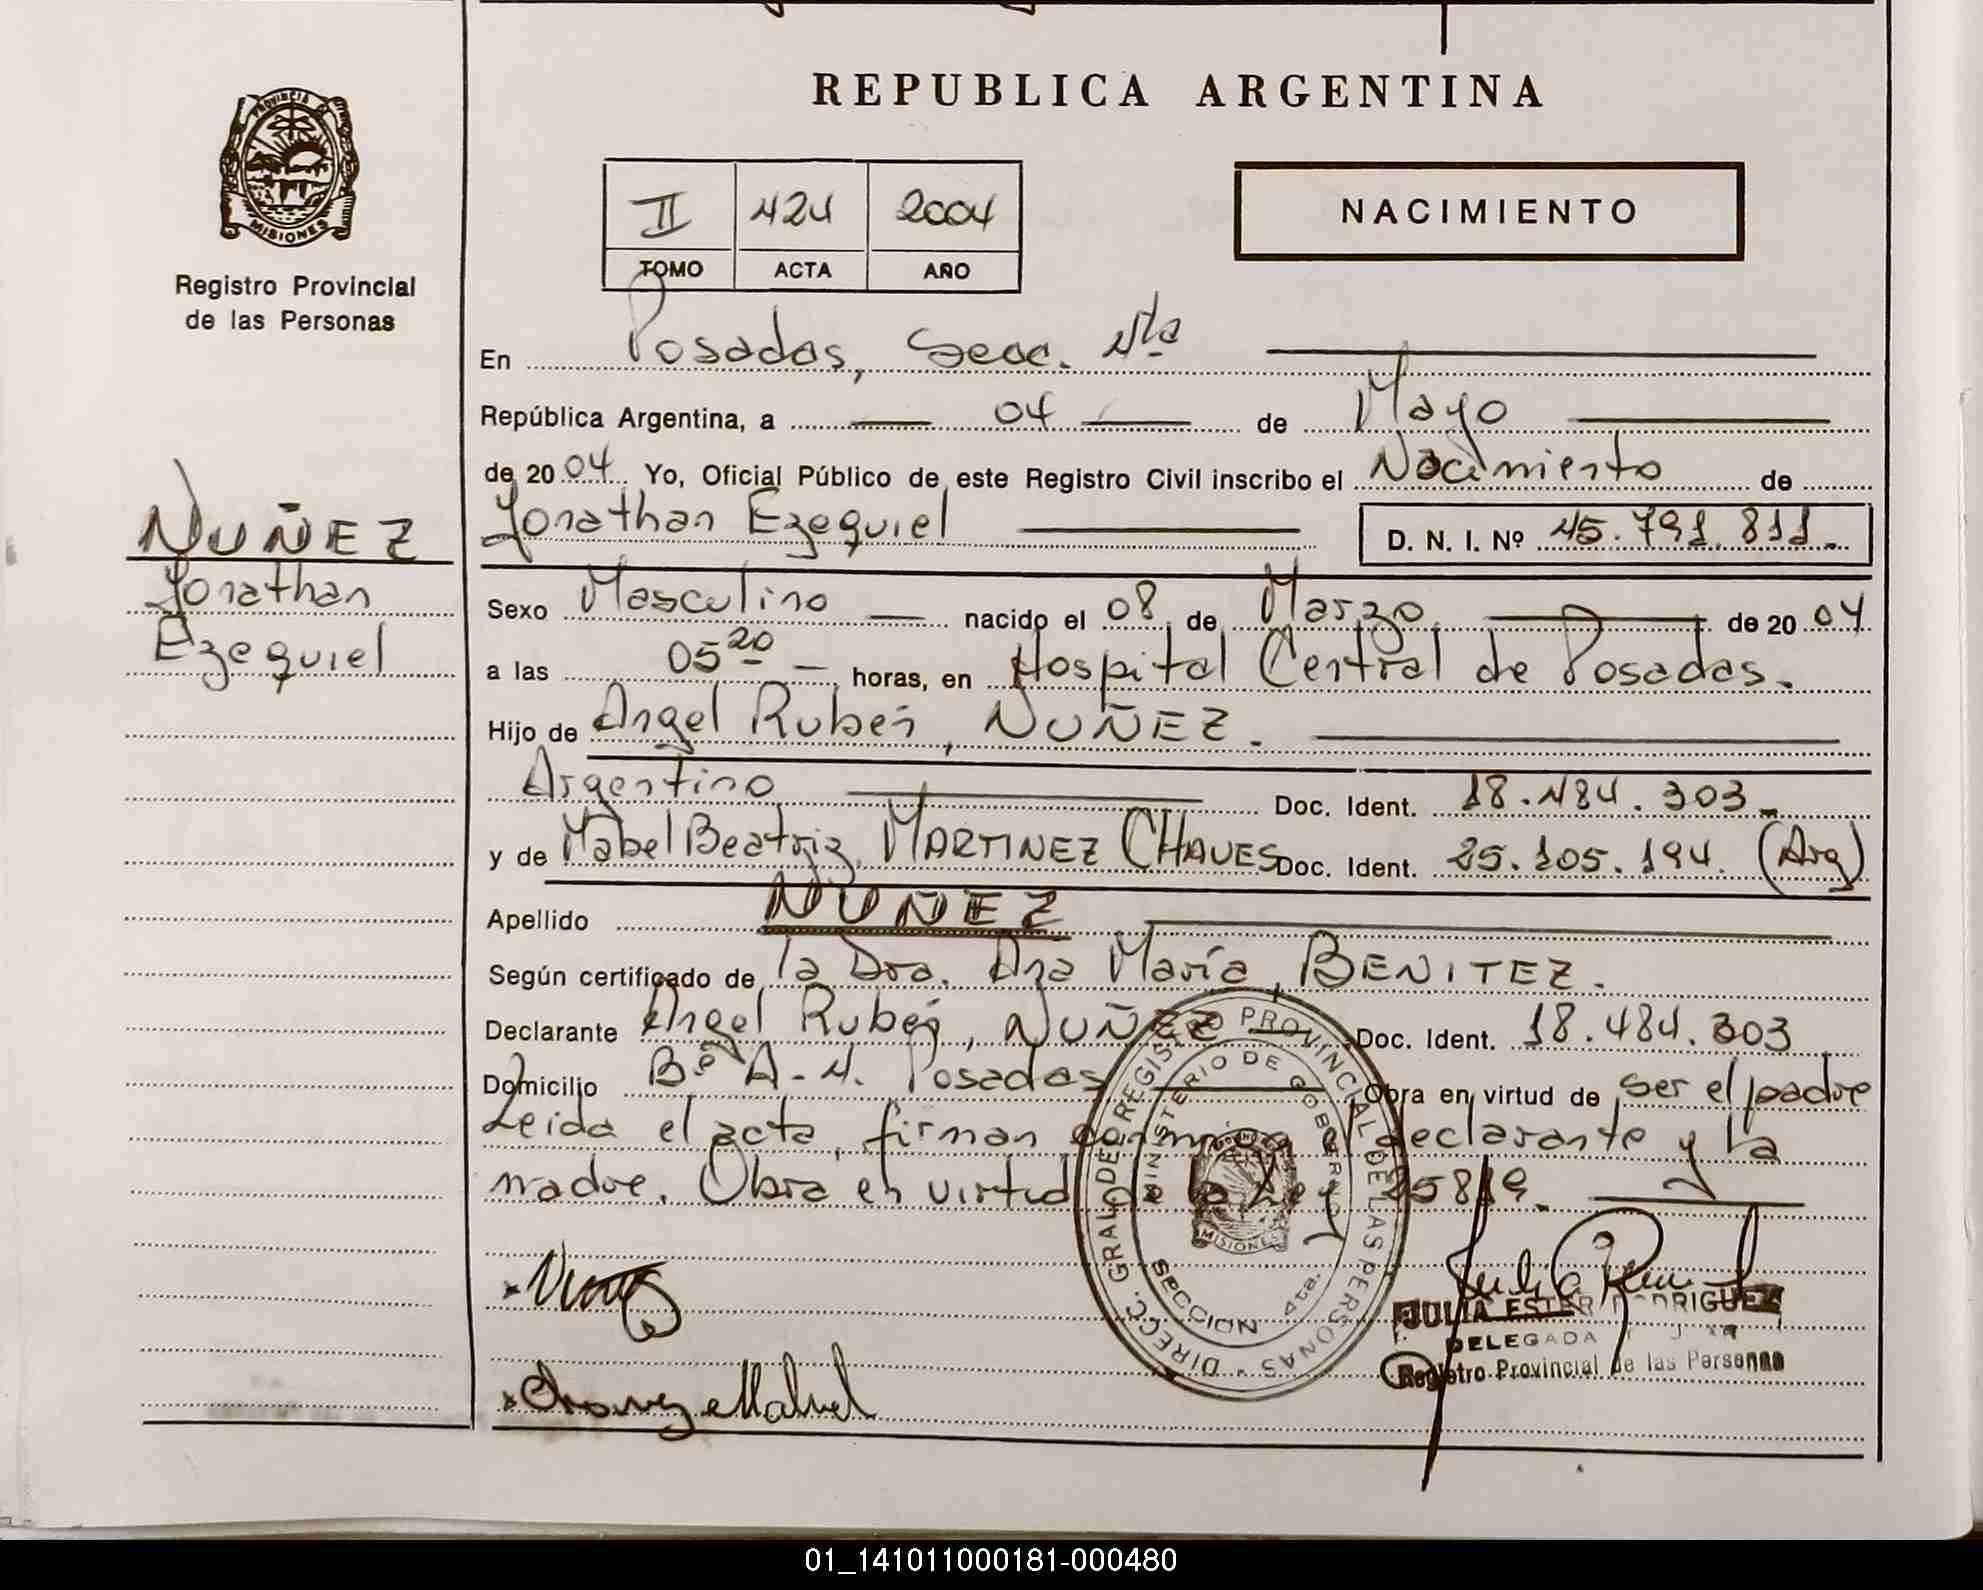 REPUBLICA ARGENTINA
PROVINCIA DE
MISIONES
Registro Provincial
de las Personas
II 424 2004
TOMO ACTA AÑO
NACIMIENTO
En Posadas, Secc. 4ta
República Argentina, a 04 de Mayo
de 2004 Yo, Oficial Público de este Registro Civil inscribo el Nacimiento de
Jonathan Ezequiel D. N. I. Nº 45.791.811.
NUÑEZ
Jonathan
Ezequiel
Sexo Masculino nacido el 08 de Marzo de 2004
a las 05 20 horas, en Hospital Central de Posadas.
Hijo de Angel Rubén, NUÑEZ.
Argentino Doc. Ident. 18.484.303
y de Mabel Beatriz, MARTINEZ CHAVES Doc. Ident. 25.105.194. (Arg)
Apellido NUÑEZ
Según certificado de la Dra. Ana María, BENITEZ.
Declarante Angel Rubén, NUÑEZ Doc. Ident. 18.484.303
Domicilio Bº A-4. Posadas Obra en virtud de ser el padre
Leida el acta, firman conmigo el declarante y la
madre. Obra en virtud de la Ley 25819.
DIRECC. GRAL. DE REGISTRO PROVINCIAL DE LAS PERSONAS
MINISTERIO DE GOBIERNO
SECCION 4ta.
MISIONES
JULIA ESTER RODRIGUEZ
DELEGADA
Registro Provincial de las Personas
01_141011000181-000480